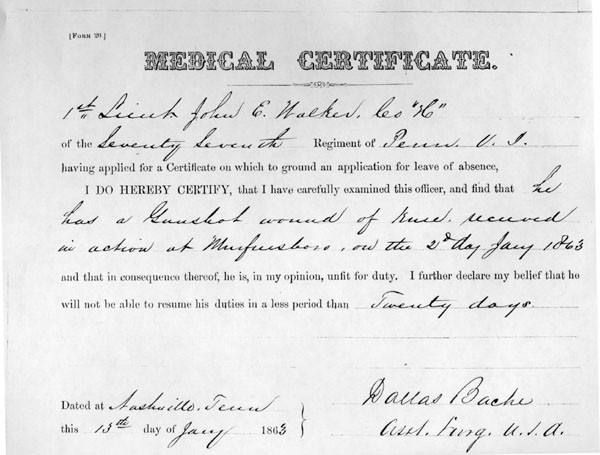 [Form 20.]
MEDICAL CERTIFICATE.
1st Lieut John E. Walker. Co "H"
of the Seventy Seventh Regiment of Penn. V. I.
having applied for a Certificate on which to ground an application for leave of absence,
I DO HEREBY CERTIFY, that I have carefully examined this officer, and find that he
has a Gunshot wound of knee. received
in action at Murfreesboro, on the 2d day Jany 1863
and that in consequence thereof, he is, in my opinion, unfit for duty. I further declare my belief that he
will not be able to resume his duties in a less period than Twenty days.
Dated at Nashville. Tenn
this 13th day of Jany 1863
Dallas Bache
Asst. Surg. U.S.A.